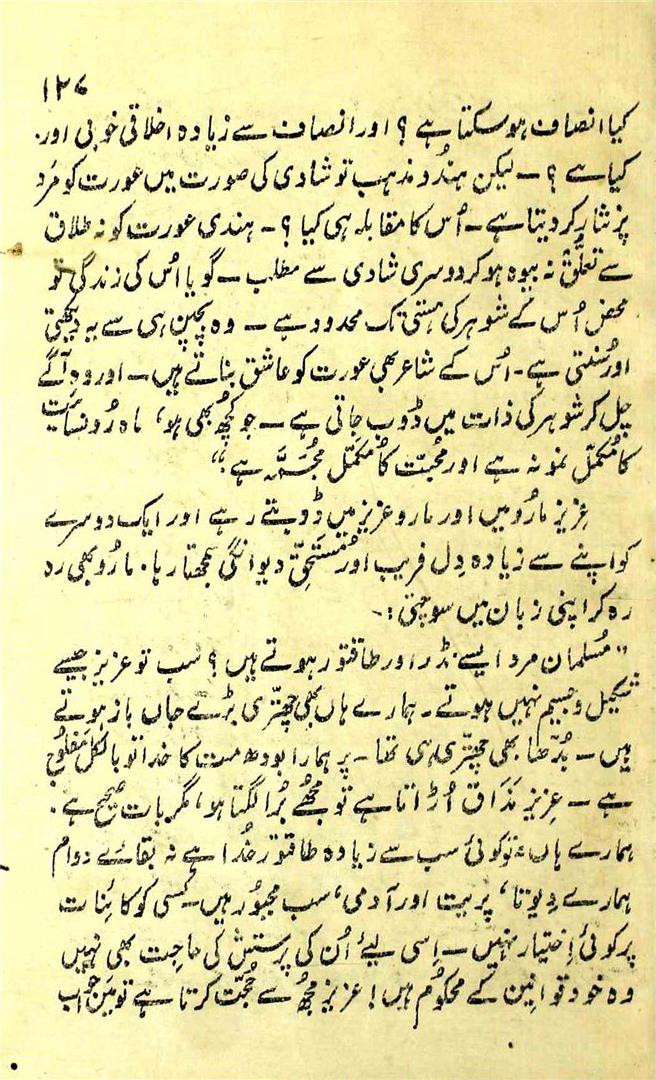 ۱۲۷
کیا انصاف ہوسکتا ہے؟ اور انصاف سے زیادہ اخلاقی خوبی اور
کیا ہے؟ ۔ لیکن ہندُو مذہب تو شادی کی صورت میں عورت کو مَرد
پر نثار کر دیتا ہے۔ اُس کا مقابلہ ہی کیا؟ ۔ ہندی عورت کو نہ طلاق
سے تعلّق نہ بیوہ ہو کر دوسری شادی سے مطلب ۔ گویا اُس کی زندگی تو
محض اُس کے شوہر کی ہستی تک محدود ہے ۔ وہ بچپن ہی سے یہ دیکھتی
اور سُنتی ہے۔ اُس کے شاعر بھی عورت کو عاشق بناتے ہیں ۔ اور وہ آگے
چل کر شوہر کی ذات میں ڈوب جاتی ہے ۔ جو کچھُ بھی ہو، مارُو نسائیت
کا مُکمّل نمونہ ہے اور محُبّت کا مُکمّل مُجسَّمہ ہے"
عزیز مارُو میں اور مارو عزیز میں ڈوبتے رہے اور ایک دوسرے
کو اپنے سے زیادہ دِل فریب اور مُستحِقِّ دیوانگی سمجھتا رہا۔ مارُو بھی رہ
رہ کر اپنی زبان میں سوچتی:۔
"مُسلمان مرد ایسے نڈر اور طاقتور ہوتے ہیں؟ سب تو عزیز جیسے
شکیل و جسیم نہیں ہوتے ۔ ہمارے ہاں بھی چھتری بڑے جاں باز ہوتے
ہیں ۔ بُدّھا بھی چھتری ہی تھا ۔ پر ہمارا بودھ مت کا خدا تو بالکل مَفلُوج
ہے ۔ عزیز مَذَاق اُڑاتا ہے تو مجھُے بُرا لگتا ہو، مگر بات صحیح ہے۔
ہمارے ہاں نہ تو کوئی سب سے زیادہ طاقتور خُدا ہے نہ بقائے دوام
ہمارے دِیوتا، پریت اور آدمی، سب مجبُور ہیں۔ کسی کو کائِنات
پر کوئی اِختیار نہیں ۔ اِسی لیئے اُن کی پرستش کی حاجت بھی نہیں
وہ خود قوانین کے محکوُم ہیں! عزیز مجھُ سے حُجّت کرتا ہے تو مَیں جواب